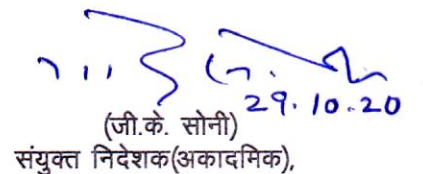 29.10.20
(जी.के. सोनी)
संयुक्त निदेशक(अकादमिक),